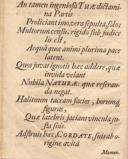 An tamen ingeniosa Tuæ dictami-
na Partis
Proliciant imo, vera sepulta, solo?
Multorum censu, rigida sub judice
lis est,
Acquâ quo animi plurima pace
latent.
Quo juvat ignotis hæc addere, quæ
invida velant
Nubila NATURÆ quæ referan-
da negat.
Halitumn taceam faciei, horumq́
figuras,
Quæ latebris jaciant vincula ju-
sta suis.
Adstruis hæc, CORDATE, suis ab o-
rigine avitâ